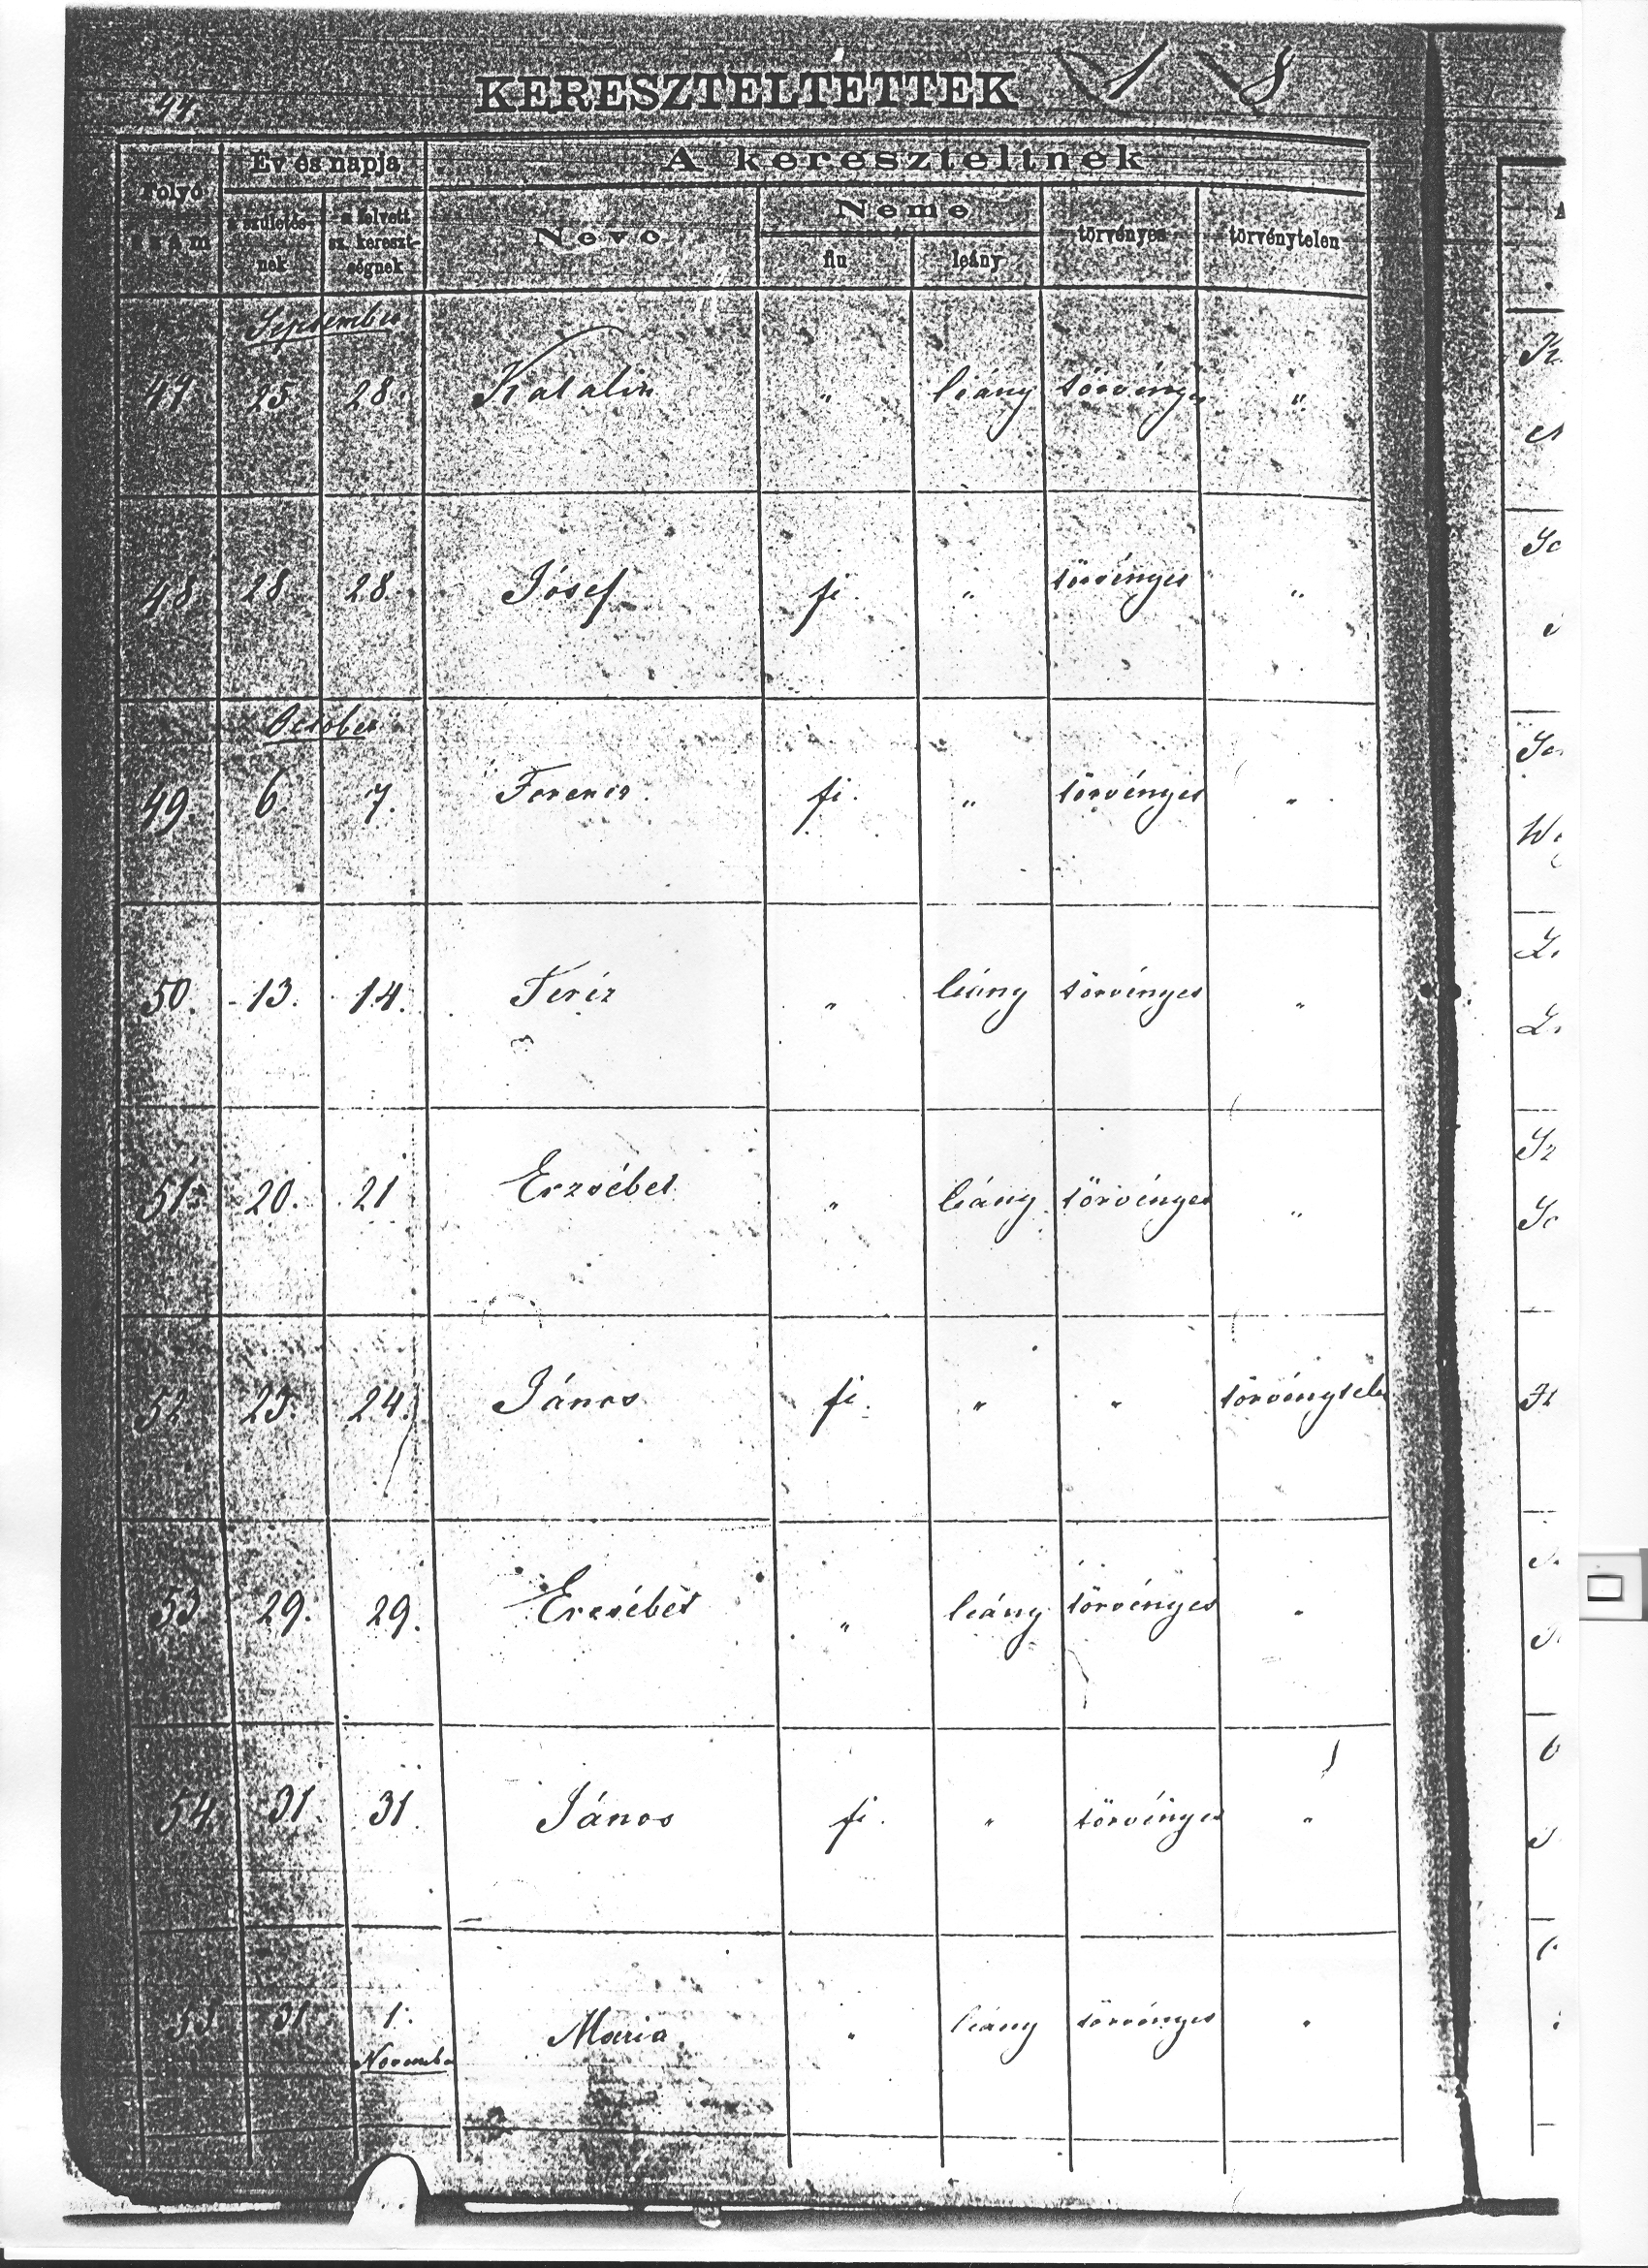 44.
KERESZTELTETTEK 1 8
Folyó szám
Év és napja
a születés-nek
a felvett sz. kereszt-ségnek
A kereszteltnek
Neve
Neme
fiu
leány
törvényes
törvénytelen
September
47 25. 28. Katalin " leány törvényes "
48 28 28. Jósef fi. " törvényes "
October
49. 6. 7. Ferencz. fi. " törvényes "
50. 13. 14. Teréz " leány törvényes "
51. 20. 21 Erzsébet " leány törvényes "
52 23. 24. János fi. " " törvénytelen
53 29. 29. Erzsébet " leány törvényes "
54 31. 31. János fi. " törvényes "
55 31 1. Maria " leány törvényes "
November